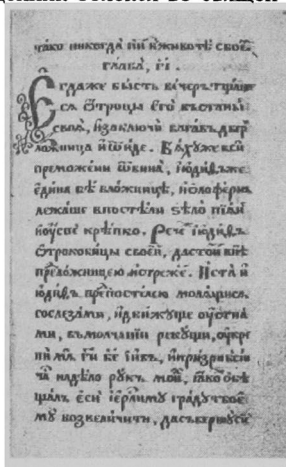 ꙗко никогда ни в животѣ своеⷨ
глава, г҃і.
Егдаже бысть вечеръ тщаше
сѧ ѿтроцы его въстаны
своѧ, изаключи вагавъ двери
ложница иѿиде. Бѧхуже вси
преможени ѿвина, іюдиѳъже
едина бѣ вложницѣ, иолоферна
лежаше впостѣли ѕѣло піанъ
иоуспе крѣпко. Рече іюдиѳъ
ѿтроковицы своеи, дастоитъ внѣ
преⷣложницею истреже. Иста и
юдиѳъ преⷣпостелею молѧщисѧ
сослезами, идвижуще оустна
ми, въмолчаніи рекущи, оукре
пи мѧ г҃и бе҃ іи҃въ, ипризри всіи
чаⷭ наⷣдѣло рукъ моеⷯ, ꙗкоⷤ обѣ
щалъ еси іеⷬлиму граду твое
му возвеличити, дасъвершусіѧ